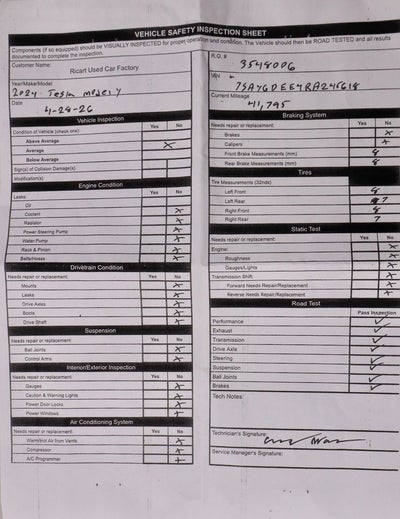 VEHICLE SAFETY INSPECTION SHEET
Components (if so equipped) should be VISUALLY INSPECTED for proper operation and condition. The Vehicle should then be ROAD TESTED and all results
documented to complete the inspection.
Customer Name:
Ricart Used Car Factory
Year/Make/Model
2024 Tesla Model Y
Date
4-28-26
Vehicle Inspection
Yes No
Condition of Vehicle (check one)
Above Average
Average X
Below Average
Sign(s) of Collision Damage(s)
Modification(s)
Engine Condition
Yes No
Leaks
Oil
Coolant X
Radiator X
Power Steering Pump X
Water Pump X
Rack & Pinion X
Belts/Hoses X
Drivetrain Condition
Needs repair or replacement: Yes No
Mounts X
Leaks X
Drive Axles X
Boots X
Drive Shaft X
Suspension
Needs repair or replacement: Yes No
Ball Joints X
Control Arms X
Interior/Exterior Inspection
Needs repair or replacement: Yes No
Gauges X
Caution & Warning Lights X
Power Door Locks X
Power Windows X
Air Conditioning System
Needs repair or replacement: Yes No
Warm/Hot Air from Vents X
Compressor X
A/C Programmer X
R.O. #
3548006
VIN #
7SAYGDEE4RA245618
Current Mileage
41,795
Braking System
Needs repair or replacement: Yes No
Brakes X
Calipers X
Front Brake Measurements (mm) 8
Rear Brake Measurements (mm) 8
Tires
Tire Measurements (32nds)
Left Front 8
Left Rear 7
Right Front 8
Right Rear 7
Static Test
Needs repair or replacement: Yes No
Engine: X
Roughness X
Gauges/Lights X
Transmission Shift X
Forward Needs Repair/Replacement X
Reverse Needs Repair/Replacement X
Road Test
Pass Inspection
Performance ✓
Exhaust ✓
Transmission ✓
Drive Axle ✓
Steering ✓
Suspension ✓
Ball Joints ✓
Brakes ✓
Tech Notes:
Technician's Signature:
Service Manager's Signature: